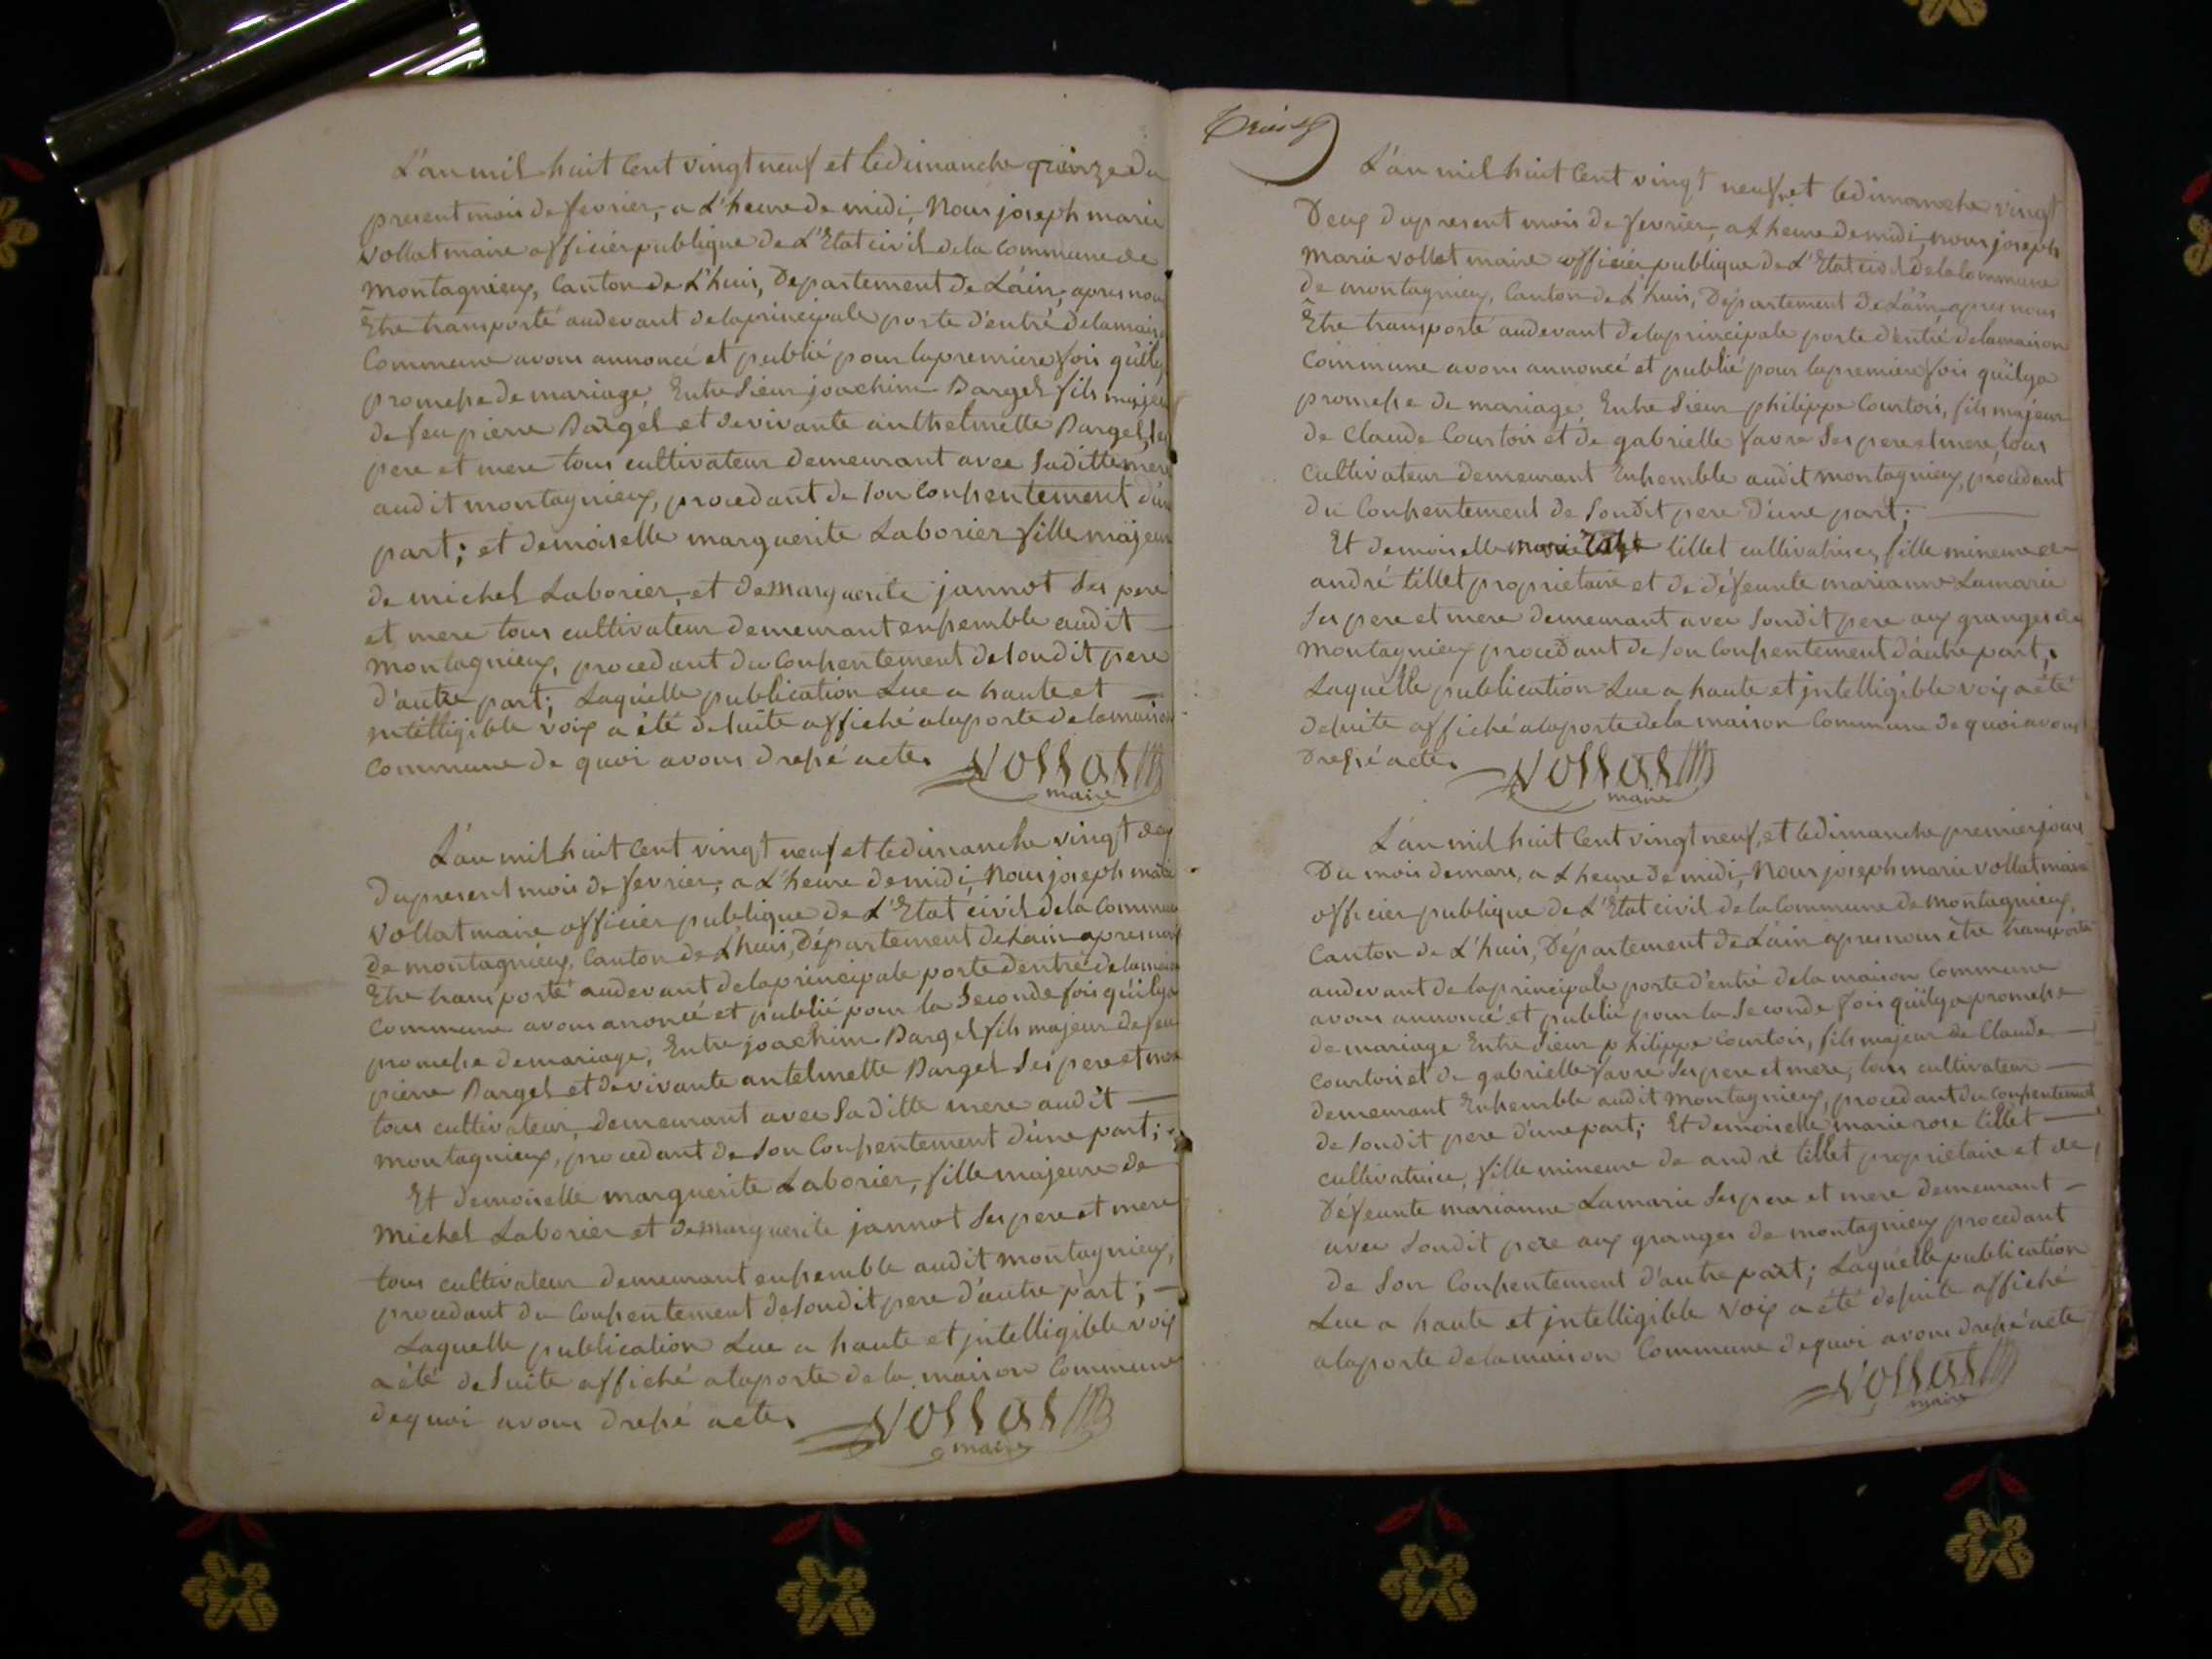 L'an mil huit Cent vingt neuf et le dimanche quinze du
present mois de fevrier, a L'heure de midi, Nous joseph marie
vollat maire officier publique de L'Etat civil de la Commune de
montagnieux, Canton de L'huis, Departement de L'ain, apres nous
Etre transporté audevant de la principale porte d'entré de la maison
Commune avons annoncé et publié pour la premiere fois qu'il y
promesse de mariage, Entre Sieur joachim Dargel fils majeur
de feu pierre Dargel et de vivante anthelmette Dargel, ses
pere et mere tous cultivateur demeurant avec sa ditte mere
audit montagnieux, procedant de son Consentement d'une
part; et demoiselle marguerite Laborier fille majeur
de michel Laborier, et de marguerite jannot ses pere
et mere tous cultivateur demeurant ensemble audit
montagnieux, procedant du Consentement de son dit pere
d'autre part; Laquelle publication Lue a haute et
intelligible voix a été de suite affiché a la porte de la maison
Commune de quoi avons dressé acte. Vollat
maire
L'an mil huit Cent vingt neuf et le dimanche vingt deux
du present mois de fevrier, a L'heure de midi, Nous joseph marie
vollat maire officier publique de L'Etat civil de la Commune
de montagnieux, Canton de L'huis, Département de L'ain apres nous
Etre transporté audevant de la principale porte d'entré de la maison
Commune avons anoncé et publié pour la Seconde fois qu'il ya
promesse de mariage, Entre joachim Dargel fils majeur de feu
pierre Dargel et de vivante antelmette Dargel Ses pere et mere
tous cultivateur, demeurant avec Sa ditte mere audit
montagnieux, procedant de son Consentement d'une part;
Et demoiselle marguerite Laborier, fille majeure de
michel Laborier et de marguerite jannot Ses pere et mere
tous cultivateur demeurant ensemble audit montagnieux,
procedant du Consentement de son dit pere d'autre part;
Laquelle publication Lue a haute et jntelligible voix
a été de Suite affiché a la porte de la maison Commune
de quoi avons dressé acte. Vollat
maire
L'an mil huit Cent vingt neuf, et le dimanche vingt
Deux du present mois de fevrier, a L'heure de midi, nous joseph
marie vollat maire officier publique de L'Etat civil de la Commune
de montagnieux, Canton de L'huis, Département de L'ain apres nous
Etre transporté audevant de la principale porte d'entré de la maison
Commune avons annoncé et publié pour la premiere fois qu'il ya
promesse de mariage, Entre Sieur philippe Courtois, fils majeur
de Claude Courtois et de gabrielle favre Ses pere et mere, tous
cultivateur demeurant Ensemble audit montagnieux, procedant
du Consentement de son dit pere d'une part;
Et demoiselle marie tillet cultivatrice, fille mineure de
andré tillet propriétaire et de défeunte marianne Lamarie
Ses pere et mere demeurant avec son dit pere aux granges de
montagnieux procedant de son Consentement d'autre part,
Laquelle publication Lue a haute et jntelligible voix a été
de suite affiché a la porte de la maison Commune de quoi avons
Dressé acte. Vollat
maire
L'an mil huit Cent vingt neuf, et le dimanche premier jour
Du mois de mars, a L'heure de midi, Nous joseph marie vollat maire
officier publique de L'Etat civil de la Commune de montagnieux,
Canton de L'huis, Département de L'ain apres nous être transporté
audevant de la principale porte d'entré de la maison Commune
avons annoncé et publié pour la Seconde fois qu'il ya promesse
de mariage Entre Sieur philippe Courtois, fils majeur de Claude
Courtois et de gabrielle favre Ses pere et mere, tous cultivateur
demeurant Ensemble audit montagnieux, procedant du Consentement
de son dit pere d'une part; Et demoiselle marie rose tillet
cultivatrice, fille mineure de andré tillet propriétaire et de
Défeunte marianne Lamarie Ses pere et mere demeurant
avec son dit pere aux granges de montagnieux procedant
de son Consentement d'autre part; Laquelle publication
Lue a haute et jntelligible voix a été de suite affiché
a la porte de la maison Commune de quoi avons dressé acte
Vollat
maire